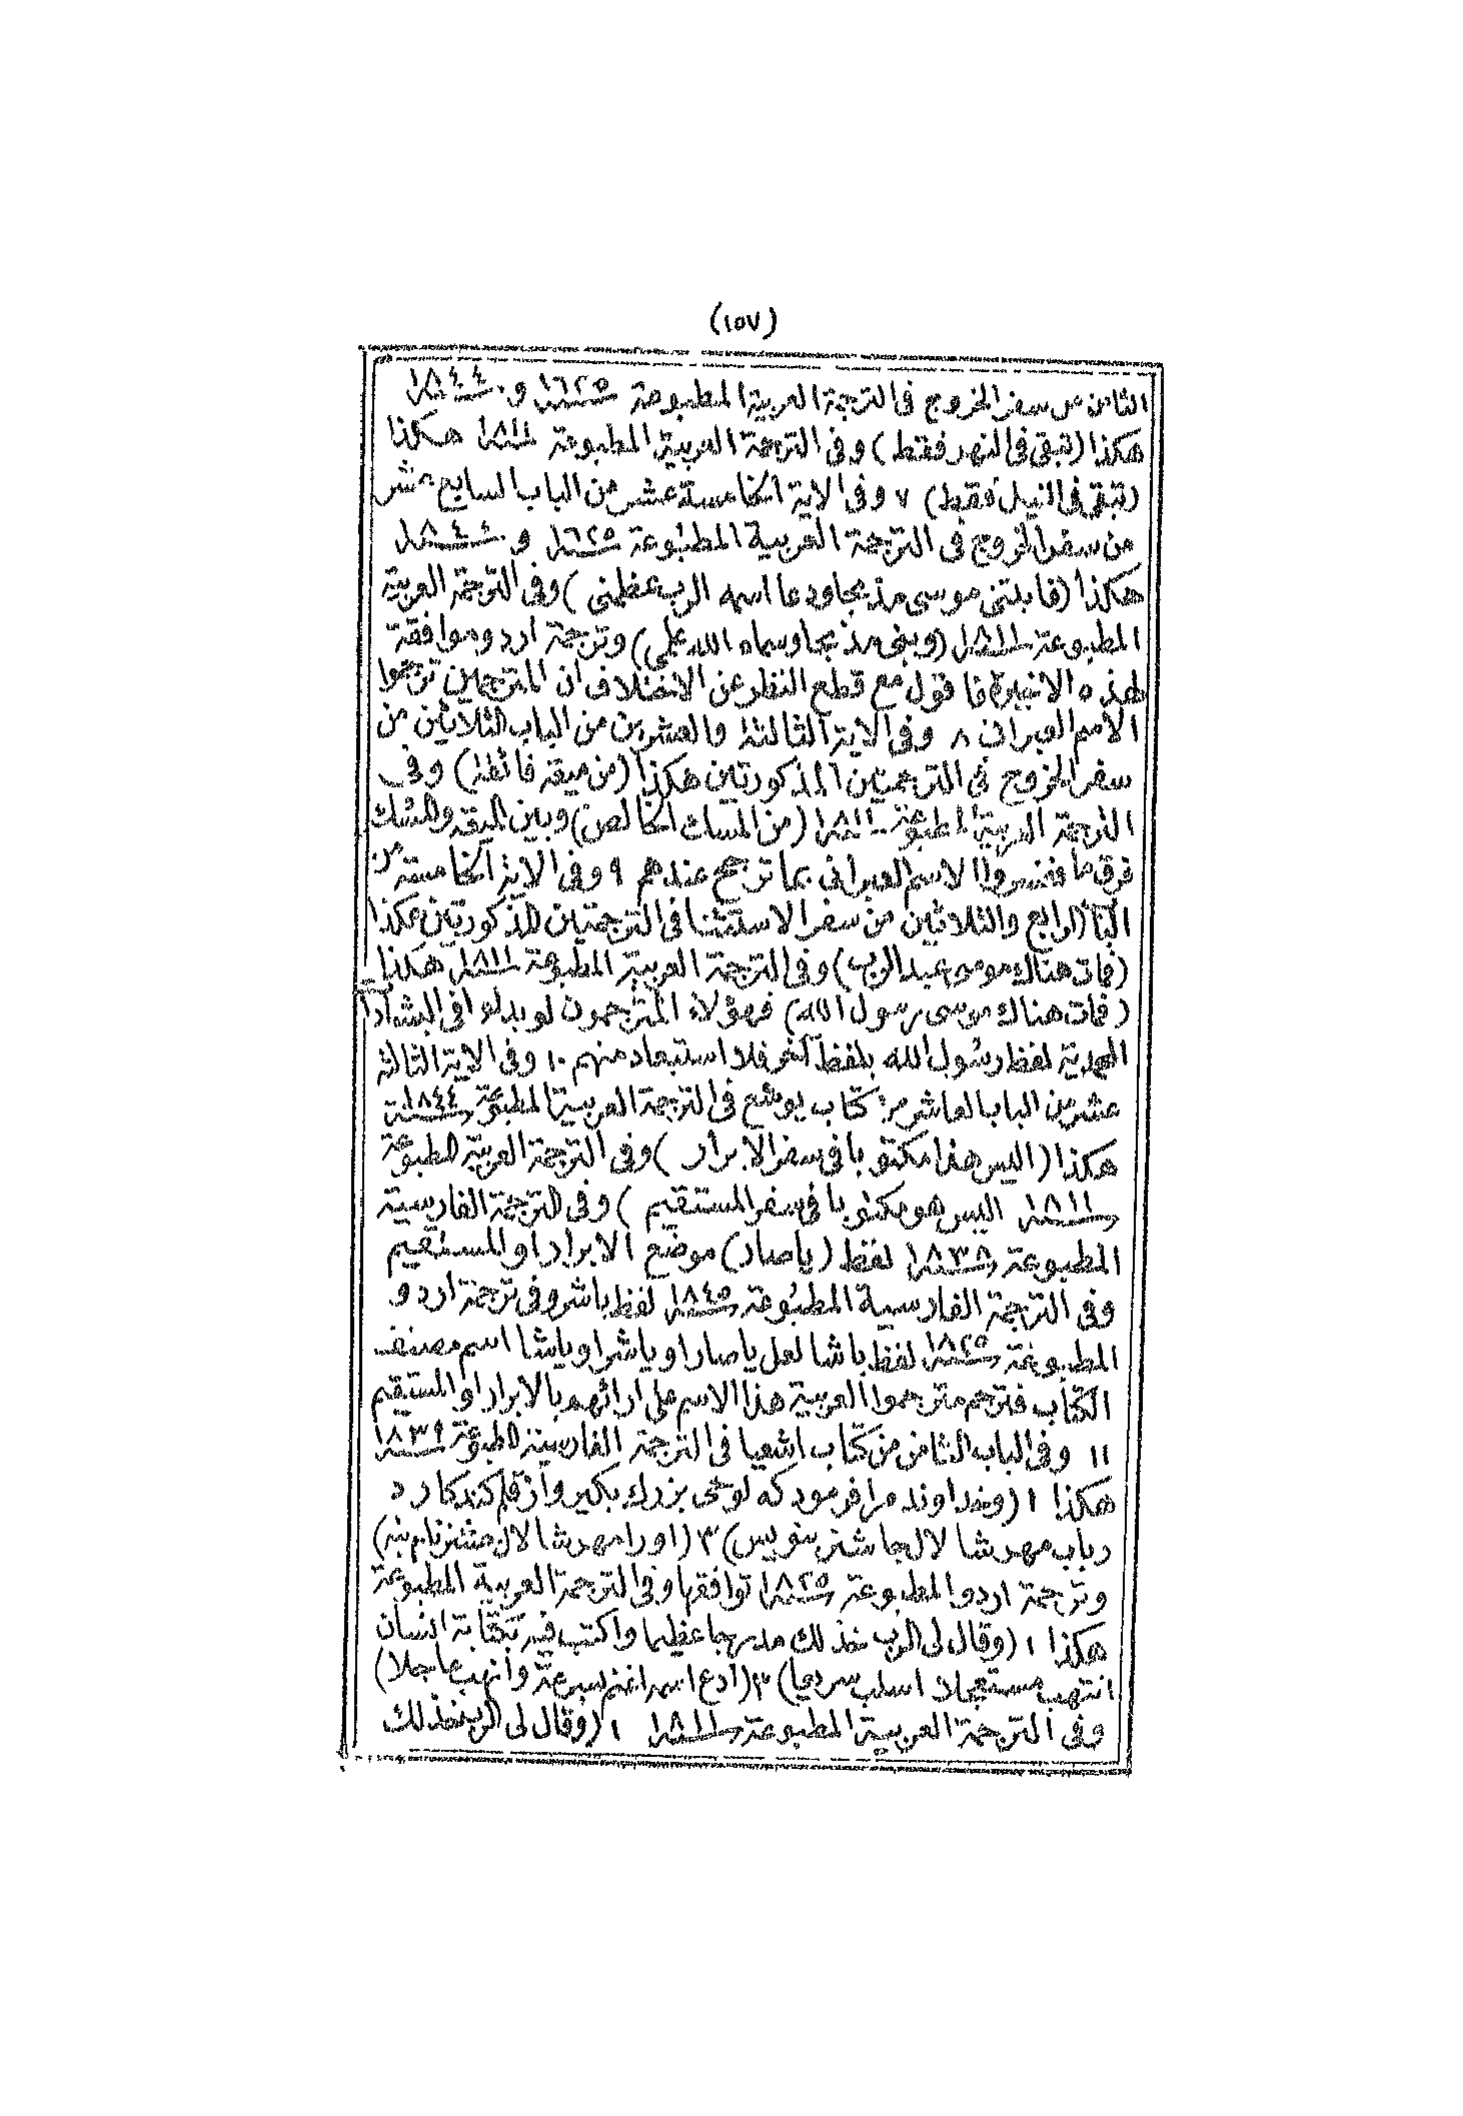 (١٥٧)
الثامن من سفر الخروج فى الترجمة العربية المطبوعة ١٦٢٥ و ١٨٤٤
هكذا (تبقى فى النهر فقط) وفى الترجمة العربية المطبوعة ١٨١١ هكذا
(تبقى فى النيل فقط) ٧ وفى الاية الخامسة عشر من الباب السابع عشر
من سفر الخروج فى الترجمة العربية المطبوعة ١٦٢٥ و ١٨٤٤
هكذا (فابتنى موسى مذبحا ودعا اسمه الرب عظمنى) وفى الترجمة العربية
المطبوعة ١٨١١ (وبنى مذبحا وسماه الله علمى) وترجمة اردو موافقة
لهذه الاخيرة فاقول مع قطع النظر عن الاختلاف ان المترجمين ترجموا
الاسم العبرانى ٨ وفى الاية الثالثة والعشرين من الباب الثلاثين من
سفر الخروج فى الترجمتين المذكورتين هكذا (من ميعة فائقة) وفى
الترجمة العربية المطبوعة ١٨١١ (من المسك الخالص) وبين الميعة والمسك
فرق ما ففسروا الاسم العبرانى بما ترجح عندهم ٩ وفى الاية الخامسة من
الباب الرابع والثلاثين من سفر الاستثنا فى الترجمتين المذكورتين هكذا
(فمات هناك موسى عبد الرب) وفى الترجمة العربية المطبوعة ١٨١١ هكذا
(فمات هناك موسى رسول الله) فهؤلاء المترجمون لو بدلوا فى البشارات
المحمدية لفظ رسول الله بلفظ آخر فلا استبعاد منهم ١٠ وفى الاية الثالثة
عشر من الباب العاشر من كتاب يوشع فى الترجمة العربية المطبوعة ١٨٤٤
هكذا (اليس هذا مكتوبا فى سفر الابرار) وفى الترجمة العربية المطبوعة
١٨١١ اليس هو مكتوبا فى سفر المستقيم) وفى الترجمة الفارسية
المطبوعة ١٨٣٨ لفظ (ياصار) موضع الابرار او المستقيم
وفى الترجمة الفارسية المطبوعة ١٨٤٥ لفظ ياشر وفى ترجمة اردو
المطبوعة ١٨٢٥ لفظ ياشا لعل ياصار او ياشر او ياشا اسم مصنف
الكتاب فترجم مترجموا العربية هذا الاسم على ارائهم بالابرار او المستقيم
١١ وفى الباب الثامن من كتاب اشعيا فى الترجمة الفارسية المطبوعة ١٨٣٩
هكذا ١ (وخداوند مرا فرمود كه لوحى بزرك بكير واز قلم كنده كار د
رباب مهر شا لال جاشنر بنويس) ٣ (اورا مهر شا لال جشنر نام بنه)
وترجمة اردو المطبوعة ١٨٢٥ توافقها وفى الترجمة العربية المطبوعة
هكذا ١ (وقال لى الرب خذ لك مدرجا عظيما واكتب فيه بكتابة انسان
انتهب مستعجلا اسلب سريعا) ٣ (ادع اسمه اغنم بسرعة وانهب عاجلا)
وفى الترجمة العربية المطبوعة ١٨١١ ١ (وقال لى الرب خذ لك